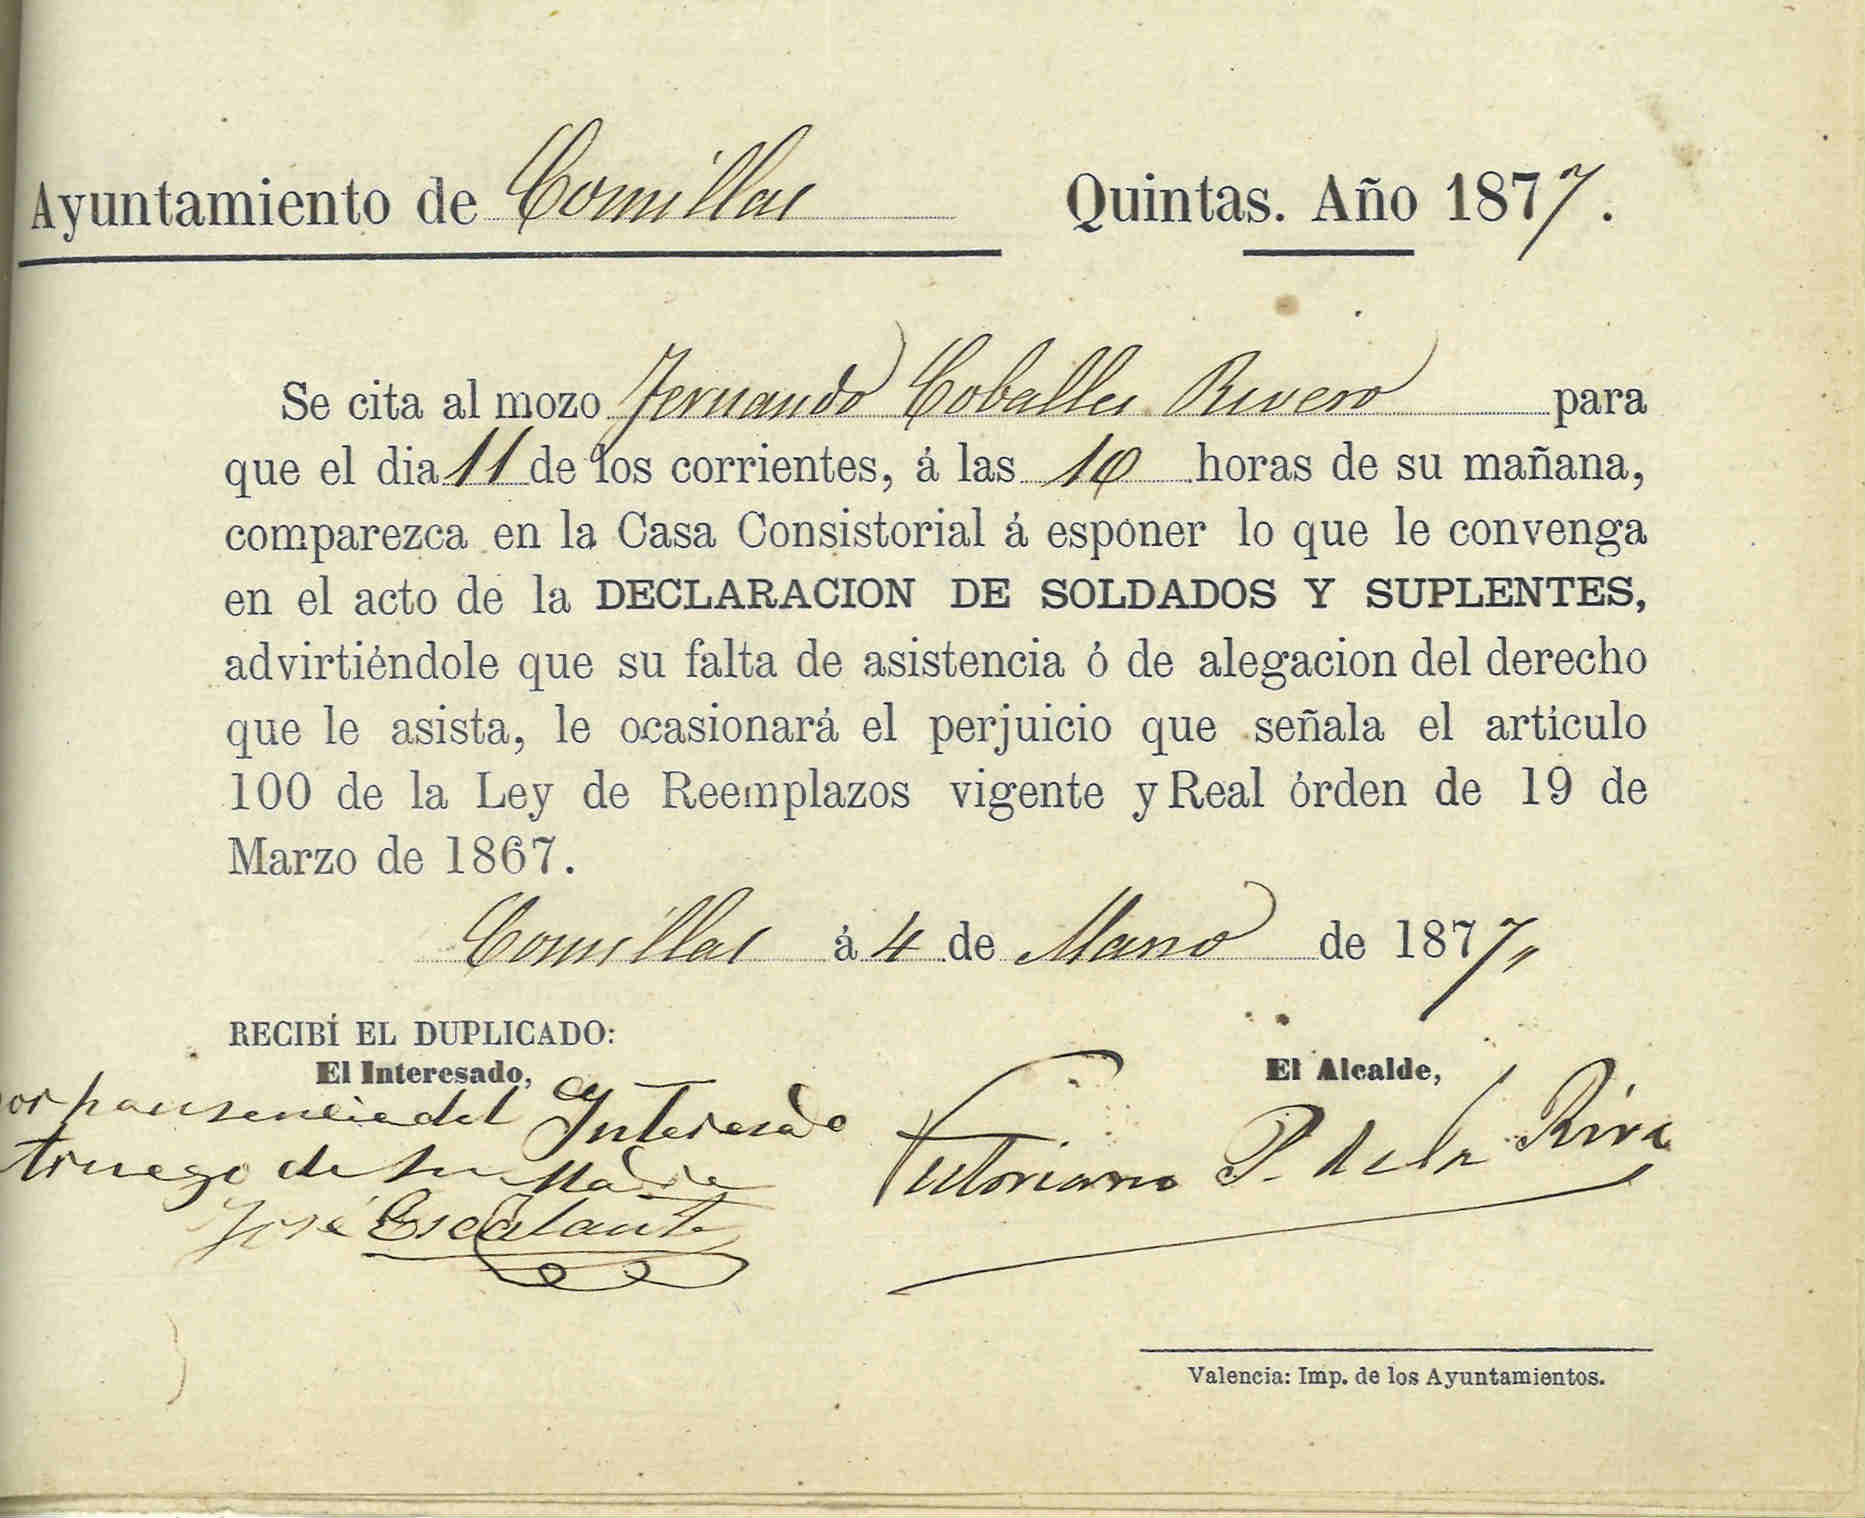 Ayuntamiento de Comillas Quintas. Año 1877.
Se cita al mozo Fernando Coballes Rivero para
que el dia 11 de los corrientes, á las 10 horas de su mañana,
comparezca en la Casa Consistorial á esponer lo que le convenga
en el acto de la DECLARACION DE SOLDADOS Y SUPLENTES,
advirtiéndole que su falta de asistencia ó de alegacion del derecho
que le asista, le ocasionará el perjuicio que señala el artículo
100 de la Ley de Reemplazos vigente y Real órden de 19 de
Marzo de 1867.
Comillas á 4 de Marzo de 1877
RECIBÍ EL DUPLICADO:
El Interesado, El Alcalde,
del Interesado
de su Madre
José Escalante
Victoriano P. de la Riva
Valencia: Imp. de los Ayuntamientos.